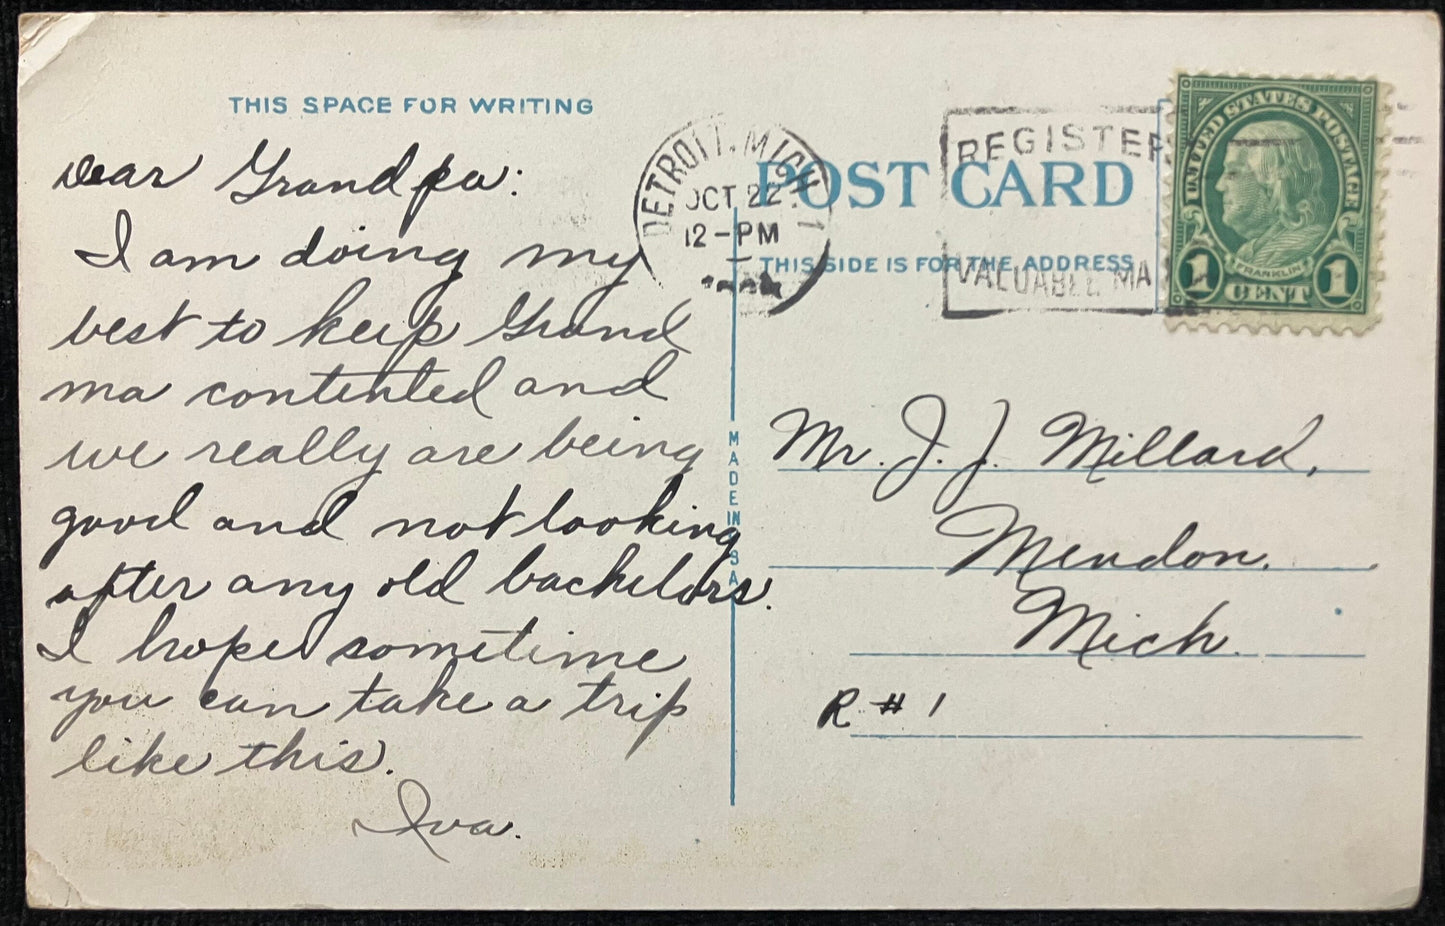 THIS SPACE FOR WRITING
Dear Grandpa:
I am doing my
best to keep Grand
ma contented and
we really are being
good and not looking
after any old bachelors.
I hope sometime
you can take a trip
like this.
Iva.
MADE IN USA
DETROIT, MICH. 1
OCT 22
12-PM
POST CARD
THIS SIDE IS FOR THE ADDRESS
REGISTER
VALUABLE MA
UNITED STATES POSTAGE
FRANKLIN
1 CENT 1
Mr. J. J. Millard,
Mendon,
Mich.
R #1